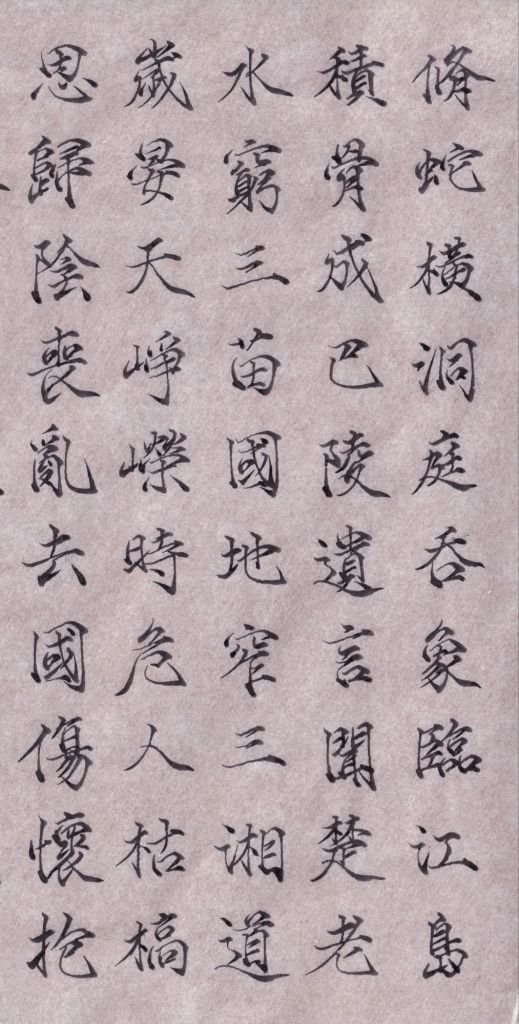 脩蛇橫洞庭吞象臨江島
積骨成巴陵遺言聞楚老
水窮三苗國地窄三湘道
歲晏天崢嶸時危人枯槁
思歸陰喪亂去國傷懷抱